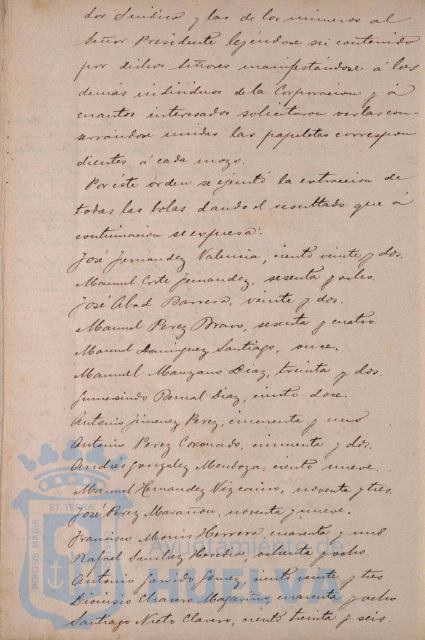 dor Sindico y las de los números al
Señor Presidente leyéndose su contenido
por dichos Señores manifestándose á los
demás individuos de la Corporacion y á
cuantos interesados solicitaron verlas con-
servándose unidas las papeletas correspon
dientes á cada mozo.
Por éste órden se ejecutó la extraccion de
todas las bolas dando el resultado que á
continuacion se expresa:
José Fernandez Valencia, ciento veinte y dos.
Manuel Corte Fernandez, sesenta y ocho.
José Abad Barrera, veinte y dos.
Manuel Perez Bravo, sesenta y cuatro
Manuel Dominguez Santiago, once.
Manuel Manzano Diaz, treinta y dos.
Gumersindo Bernal Diaz, ciento doce.
Antonio Jimenez Perez, cincuenta y uno
Antonio Perez Coronado, cincuenta y dos.
Andres Gonzalez Mendoza, ciento nueve.
Manuel Hernandez Vizcaino, noventa y tres.
José Perez Marañon, noventa y nueve.
Francisco Moris Herrera, cuarenta y uno
Rafael Sanchez Heredia, ochenta y ocho.
Antonio Garrido Gomez, ciento veinte y tres
Dionisio Chavero Magariño, cuarenta y ocho
Santiago Nieto Clavero, ciento treinta y seis.
PORTUS MARIS
ET TERRÆ
Ayuntamiento de
HUELVA